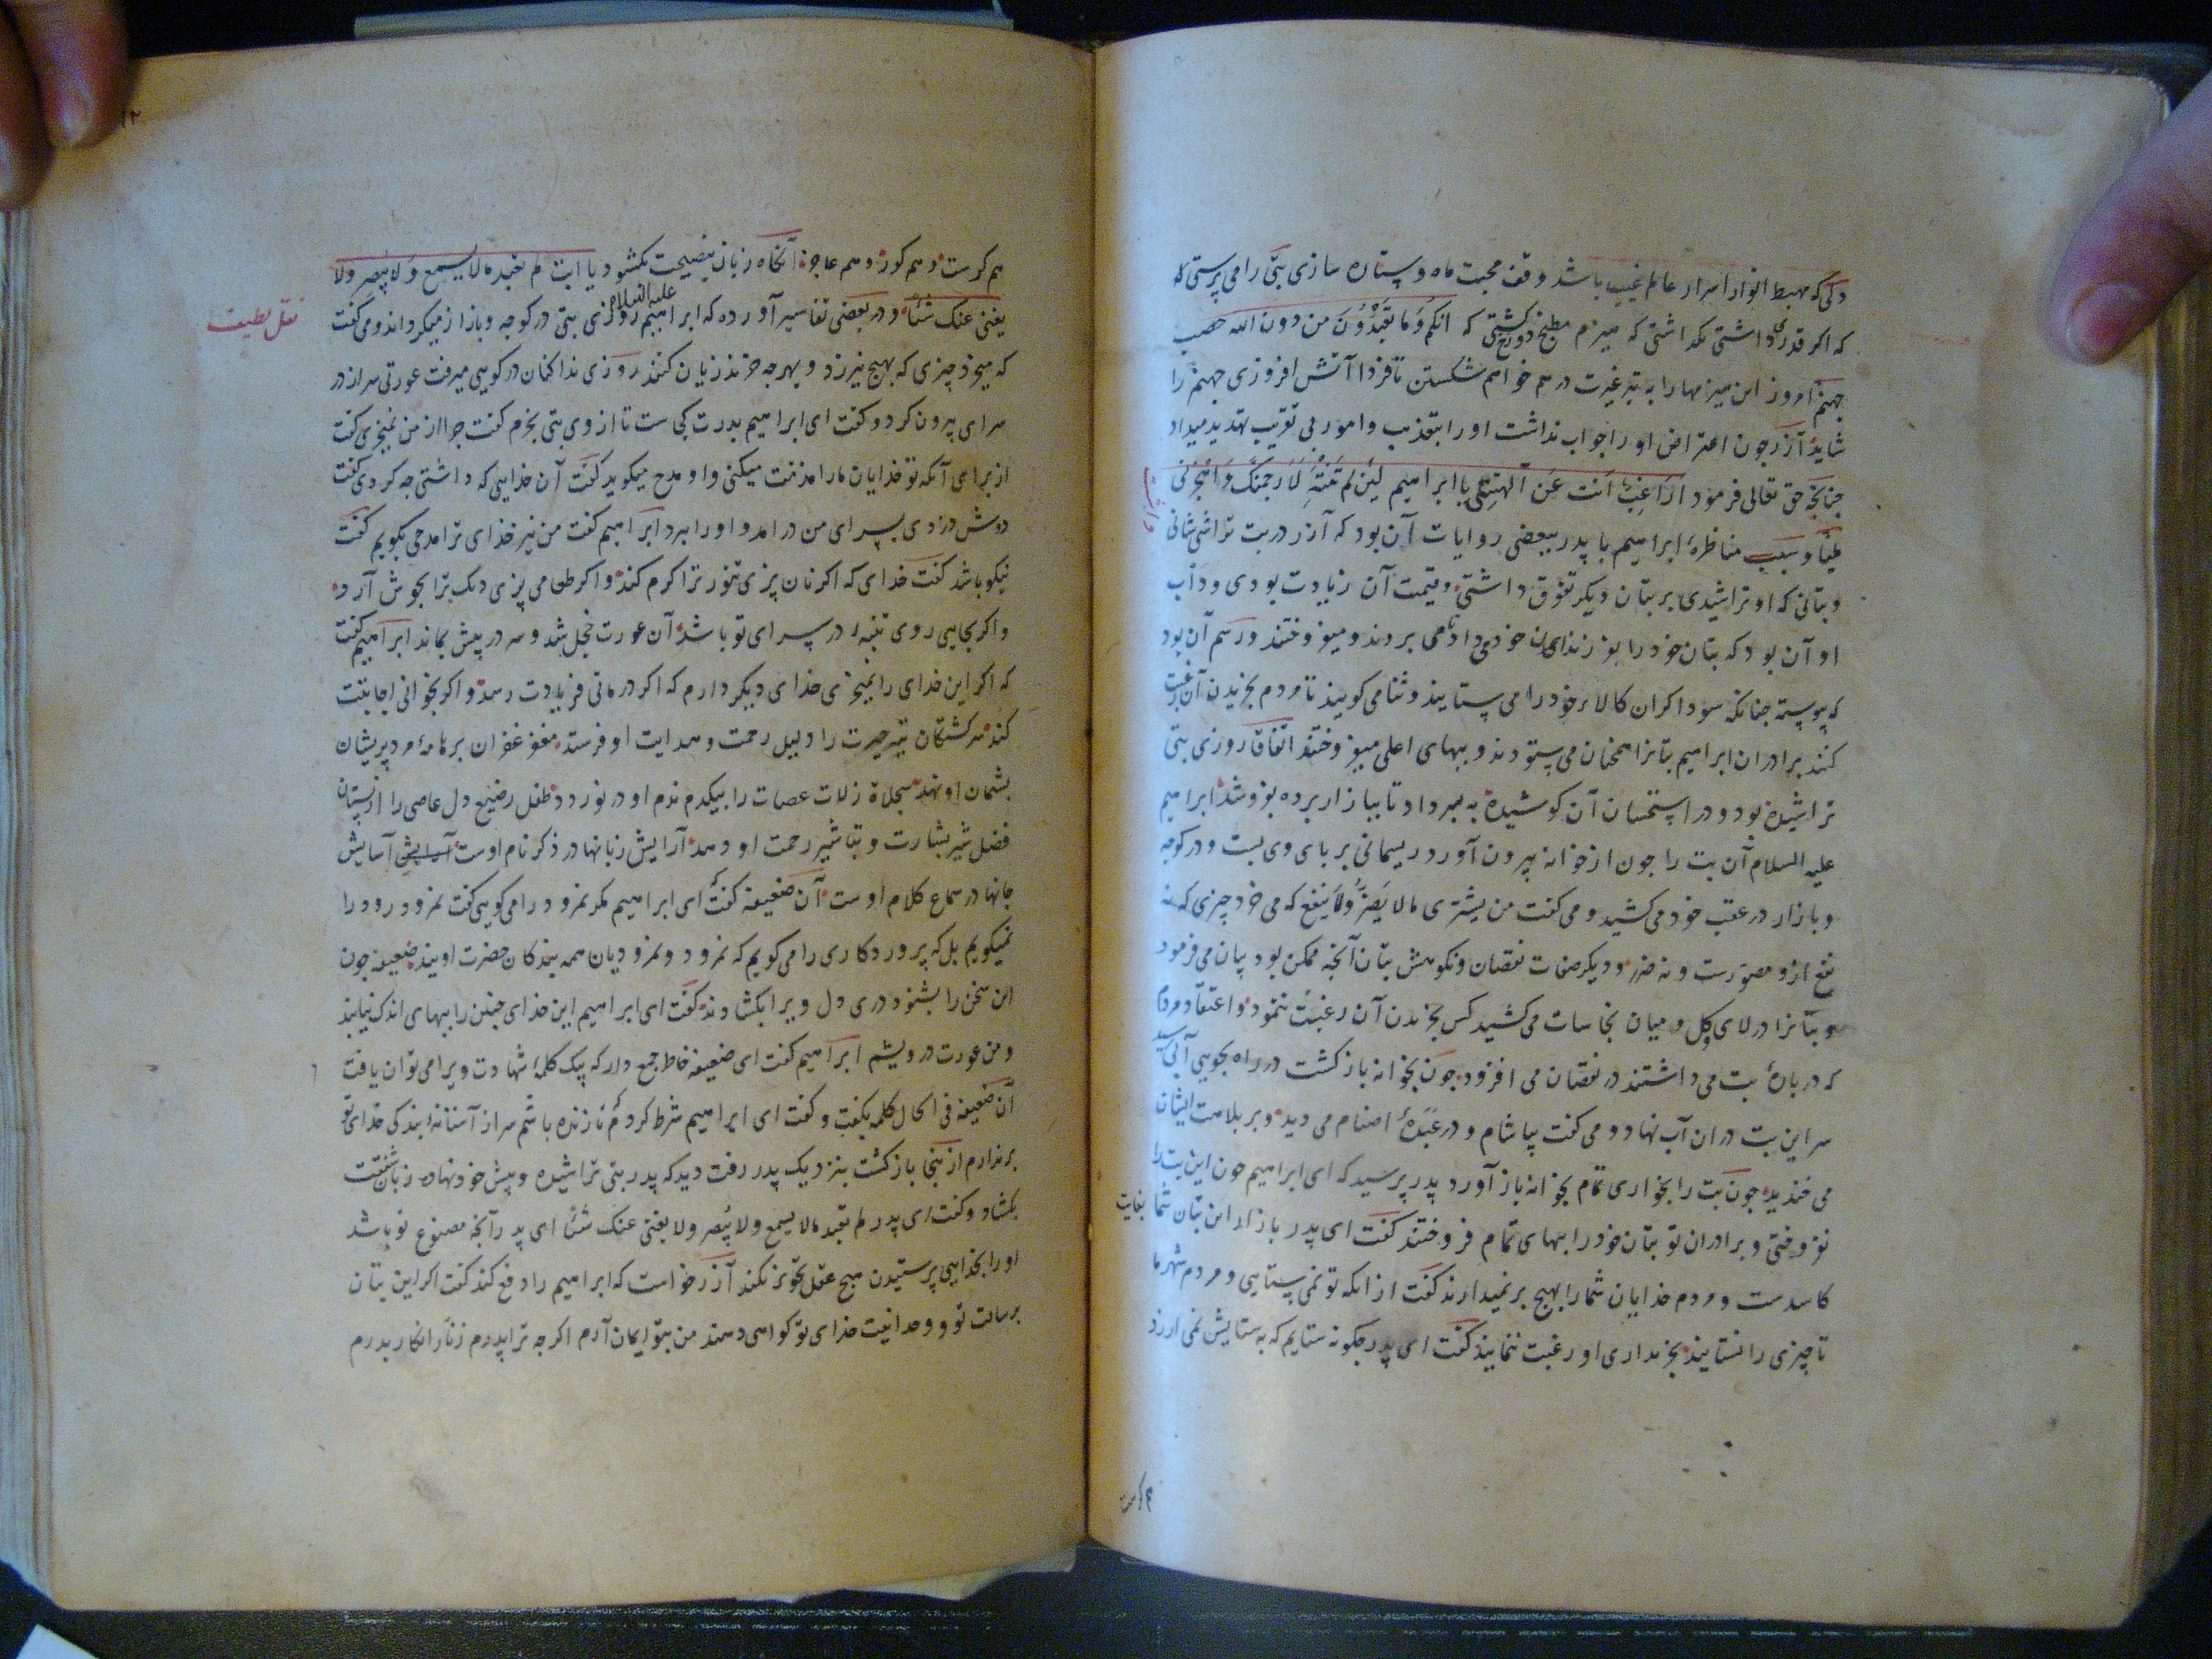 دلی که مهبط انوار اسرار عالم غیب باشد وقف محبت ماه و ستاره سازی بتی را می پرستی که
که اگر قدری داشتی نگذاشتی که هیزم مطبخ دوزخ گشتی که انکم وما تعبدون من دون الله حصب
جهنم امروز این هیزمها را به تبر غیرت درهم خواهم شکستن تا فردا آتش افروزی جهنم را
شاید آزر چون اعتراض او را جواب نداشت او را بتعذیب و امور بی تقریب تهدید میداد
چنانچه حق تعالی فرمود اراغب انت عن آلهتی یا ابراهیم لئن لم تنته لارجمنک واهجرنی
ملیا و سبب مناظره ابراهیم با پدر ببعضی روایات آن بود که آزر در بت تراشی شانی
و بتانی که او تراشیدی بر بتان دیگر تفوق داشتی و قیمت آن زیادت بودی و داب
او آن بود که بتان خود را بفرزندان خود می داد تا می بردند و میفروختند و رسم آن بود
که پیوسته چنانکه سوداگران کالاء خود را می ستایند و ثنا می گویند تا مردم بخریدن آن رغبت
کنند برادران ابراهیم بتانرا همچنان می ستودند و ببهای اعلی میفروختند اتفاقا روزی بتی
تراشیده بود و در استحسان آن کوشیده به پسر داد تا ببازار برده بفروشد ابراهیم
علیه السلام آن بت را چون از خوانه بیرون آورد ریسمانی بر پای وی بست و در کوچه
و بازار در عقب خود می کشید و می گفت من یشتری ما لا یضر ولا ینفع که می خرد چیزی که نه
نفع ازو متصورست و نه ضرر و دیگر صفات نقصان و نکوهش بتان آنچه ممکن بود بیان می فرمود
و بتانرا در لای و گل و میان نجاسات می کشید کس بخریدن آن رغبت ننمود و اعتقاد مردم
که درباره بت می داشتند در نقصان می افزود چون بخوانه بازگشت در راه بجویی آبی رسید
سر این بت در آن آب نهاد و می گفت بیاشام و در عبده اصنام می دید و بر بلاهت ایشان
می خندید چون بت را بخواری تمام بخوانه باز آورد پدر پرسید که ای ابراهیم چون این بت را
نفروختی و برادران تو بتان خود را ببهای تمام فروختند گفت ای پدر بازار این بتان شما بغایت
کاسدست و مردم خدایان شما را بهیچ برنمیدارند گفت از آنکه تو نمی ستایی و مردم شهر ما
تا چیزی را نستایند بخریداری او رغبت ننمایند گفت ای پدر چگونه ستایم که به ستایش نمی ارزد
هم کرست
هم کرست و هم کور و هم عاجز آنگاه زبان بنصیحت بگشود یا ابت لم تعبد ما لا یسمع ولا یبصر ولا
یغنی عنک شیئا و در بعضی تفاسیر آورده که ابراهیم علیه السلام روزی بتی در کوچه و بازار میگردانید و می گفت
نقل لطیف
که میخرد چیزی که بهیچ نیرزد و بهرچه خرند زیان کند روزی نداکنان در کویی میرفت عورتی سر از در
سرای بیرون کرد و گفت ای ابراهیم پدرت کجاست تا از وی بتی بخرم گفت چرا از من نمیخری گفت
از برای آنکه تو خدایان ما را مذمت میکنی و او مدح میگوید گفت آن خدایی که داشتی چه کردی گفت
دوش دزدی بسرای من درآمد و او را ببرد ابراهیم گفت من نیز خدای ترا مدحی بگویم گفت
نیکو باشد گفت خدای که اگر نان پزی تنور ترا گرم کند و اگر طعامی پزی دیگ ترا بجوش آرد
و اگر بجایی روی تنبه در سرای تو باشد آن عورت خجل شد و سر در پیش بماند ابراهیم گفت
که اگر این خدای را نمیخری خدای دیگر دارم که اگر درمانی فریادت رسد و اگر بخوانی اجابتت
کند سرگشتگان تیه حیرت را دلیل رحمت و هدایت او فرستد مغفر غفران بر نامه مرد پریشان
پشیمان او نهد سجلات زلات عصات را بیکدم ندم او درنوردد طفل رضیع دل عاصی را از پستان
فضل شیر بشارت و تباشیر رحمت او دهد آرایش زبانها در ذکر نام اوست آسایش
جانها در سماع کلام اوست آن ضعیفه گفت ای ابراهیم مگر نمرود را می گویی گفت نمرود رود را
نمیگویم بل که پروردگاری را می گویم که نمرود و نمرودیان همه بندگان حضرت اویند ضعیفه چون
این سخن را بشنود دری دل ویرا بگشادند گفت ای ابراهیم این خدای چنین را ببهای اندک نیابند
و من عورت درویشم ابراهیم گفت ای ضعیفه خاطر جمع دار که بیک کلمه شهادت ویرا می توان یافت
آن ضعیفه فی الحال کلمه بگفت و گفت ای ابراهیم شرط کردم تا زنده باشم سر از آستانه بندگی خدای تو
برندارم از آنجا بازگشت بنزدیک پدر رفت دید که پدر بتی تراشیده و پیش خود نهاده زبان شفقت
بگشاد و گفت ای پدر لم تعبد ما لا یسمع ولا یبصر ولا یغنی عنک شیئا ای پدر آنچه مصنوع تو باشد
او را بخدایی پرستیدن هیچ عقل تجویز نکند آزر خواست که ابراهیم را دفع کند گفت اگر این بتان
برسالت تو و وحدانیت خدای تو گواهی دهند من بتو ایمان آرم اگر چه ترا پدرم زنار انکار بدرم